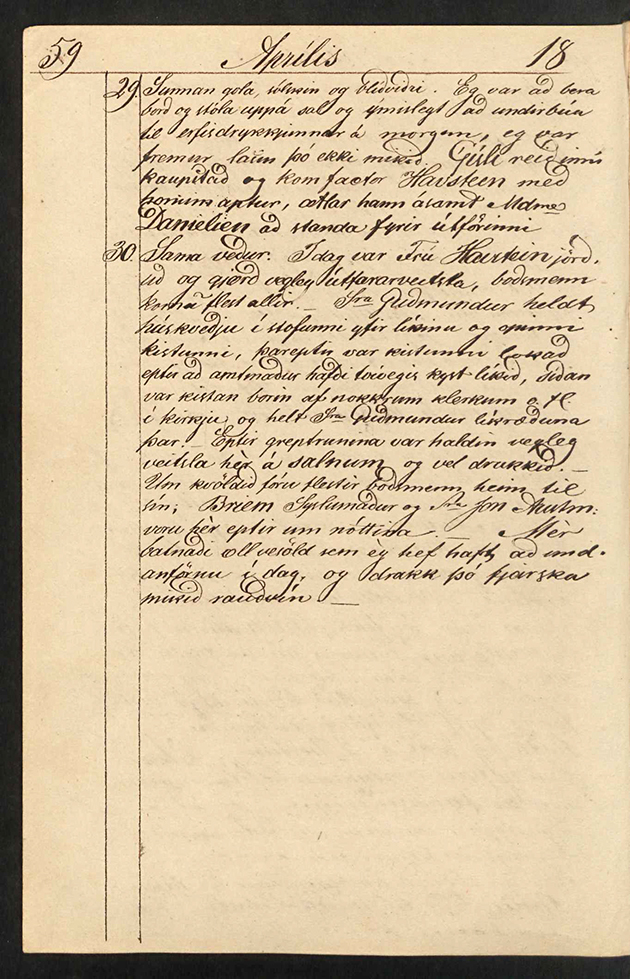 59 Aprílis 18
29. Sunnan gola, sólskin og blídvidri. Eg var ad bera
bord og stóla uppá sal og ýmislegt ad undirbúa
til erfisdrykkjunnar á morgun, eg var
fremur lasin þó ekki mikid. Gísli reid inní
kaupstad og kom factor Havsteen med
honum aptur, ætlar hann ásamt Mdme
Danielsen ad standa fyrir útförinni
30. Sama vedur. I dag var Frú Havstein jörd,
ud og gjörd vegleg útfararveitsla, bodsmenn
komu flest allir. — Sra Gudmundur heldt
húskvedju í stofunni yfir líkinu og opinni
kistunni, þareptir var kistunni lokad
eptir ad amtmadur hafdi tvívegis kyst líkid, sídan
var kistan borin af nokkrum klerkum o. fl.
í kirkju og helt Sra Gudmundur líkræduna
þar. — Eptir greptrunina var haldin vegleg
veitsla hèr á salnum og vel drukkid. —
Um kvöldid fóru flestir bodsmenn heim til
sín; Briem Syslumadur og Sra Jón
voru hèr eptir um nóttina — Mèr
batnadi öll vesöld sem èg hef haft ad und-
anförnu í dag, og drakk þó fjarska
mikid raudvín —